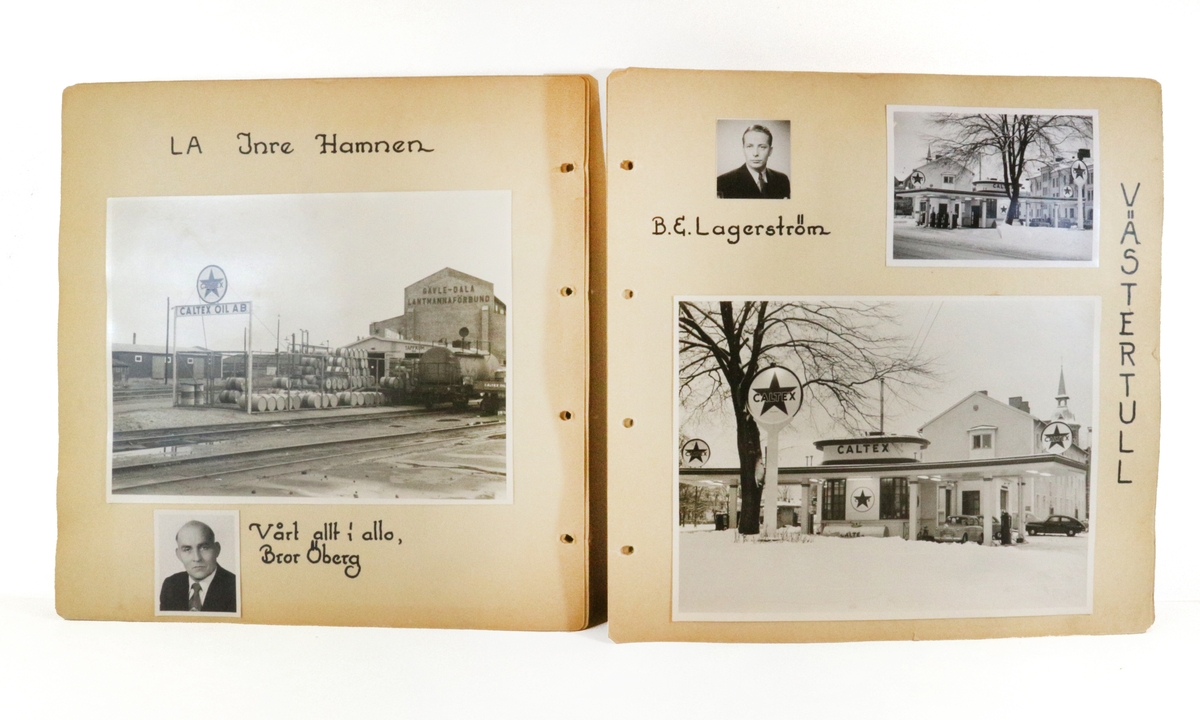 LA Inre Hamnen
CALTEX
CALTEX OIL AB
GÄVLE-DALA
LANTMANNAFÖRBUND
Vårt allt i allo,
Bror Öberg
B.E. Lagerström
VÄSTERTULL
CALTEX
CALTEX